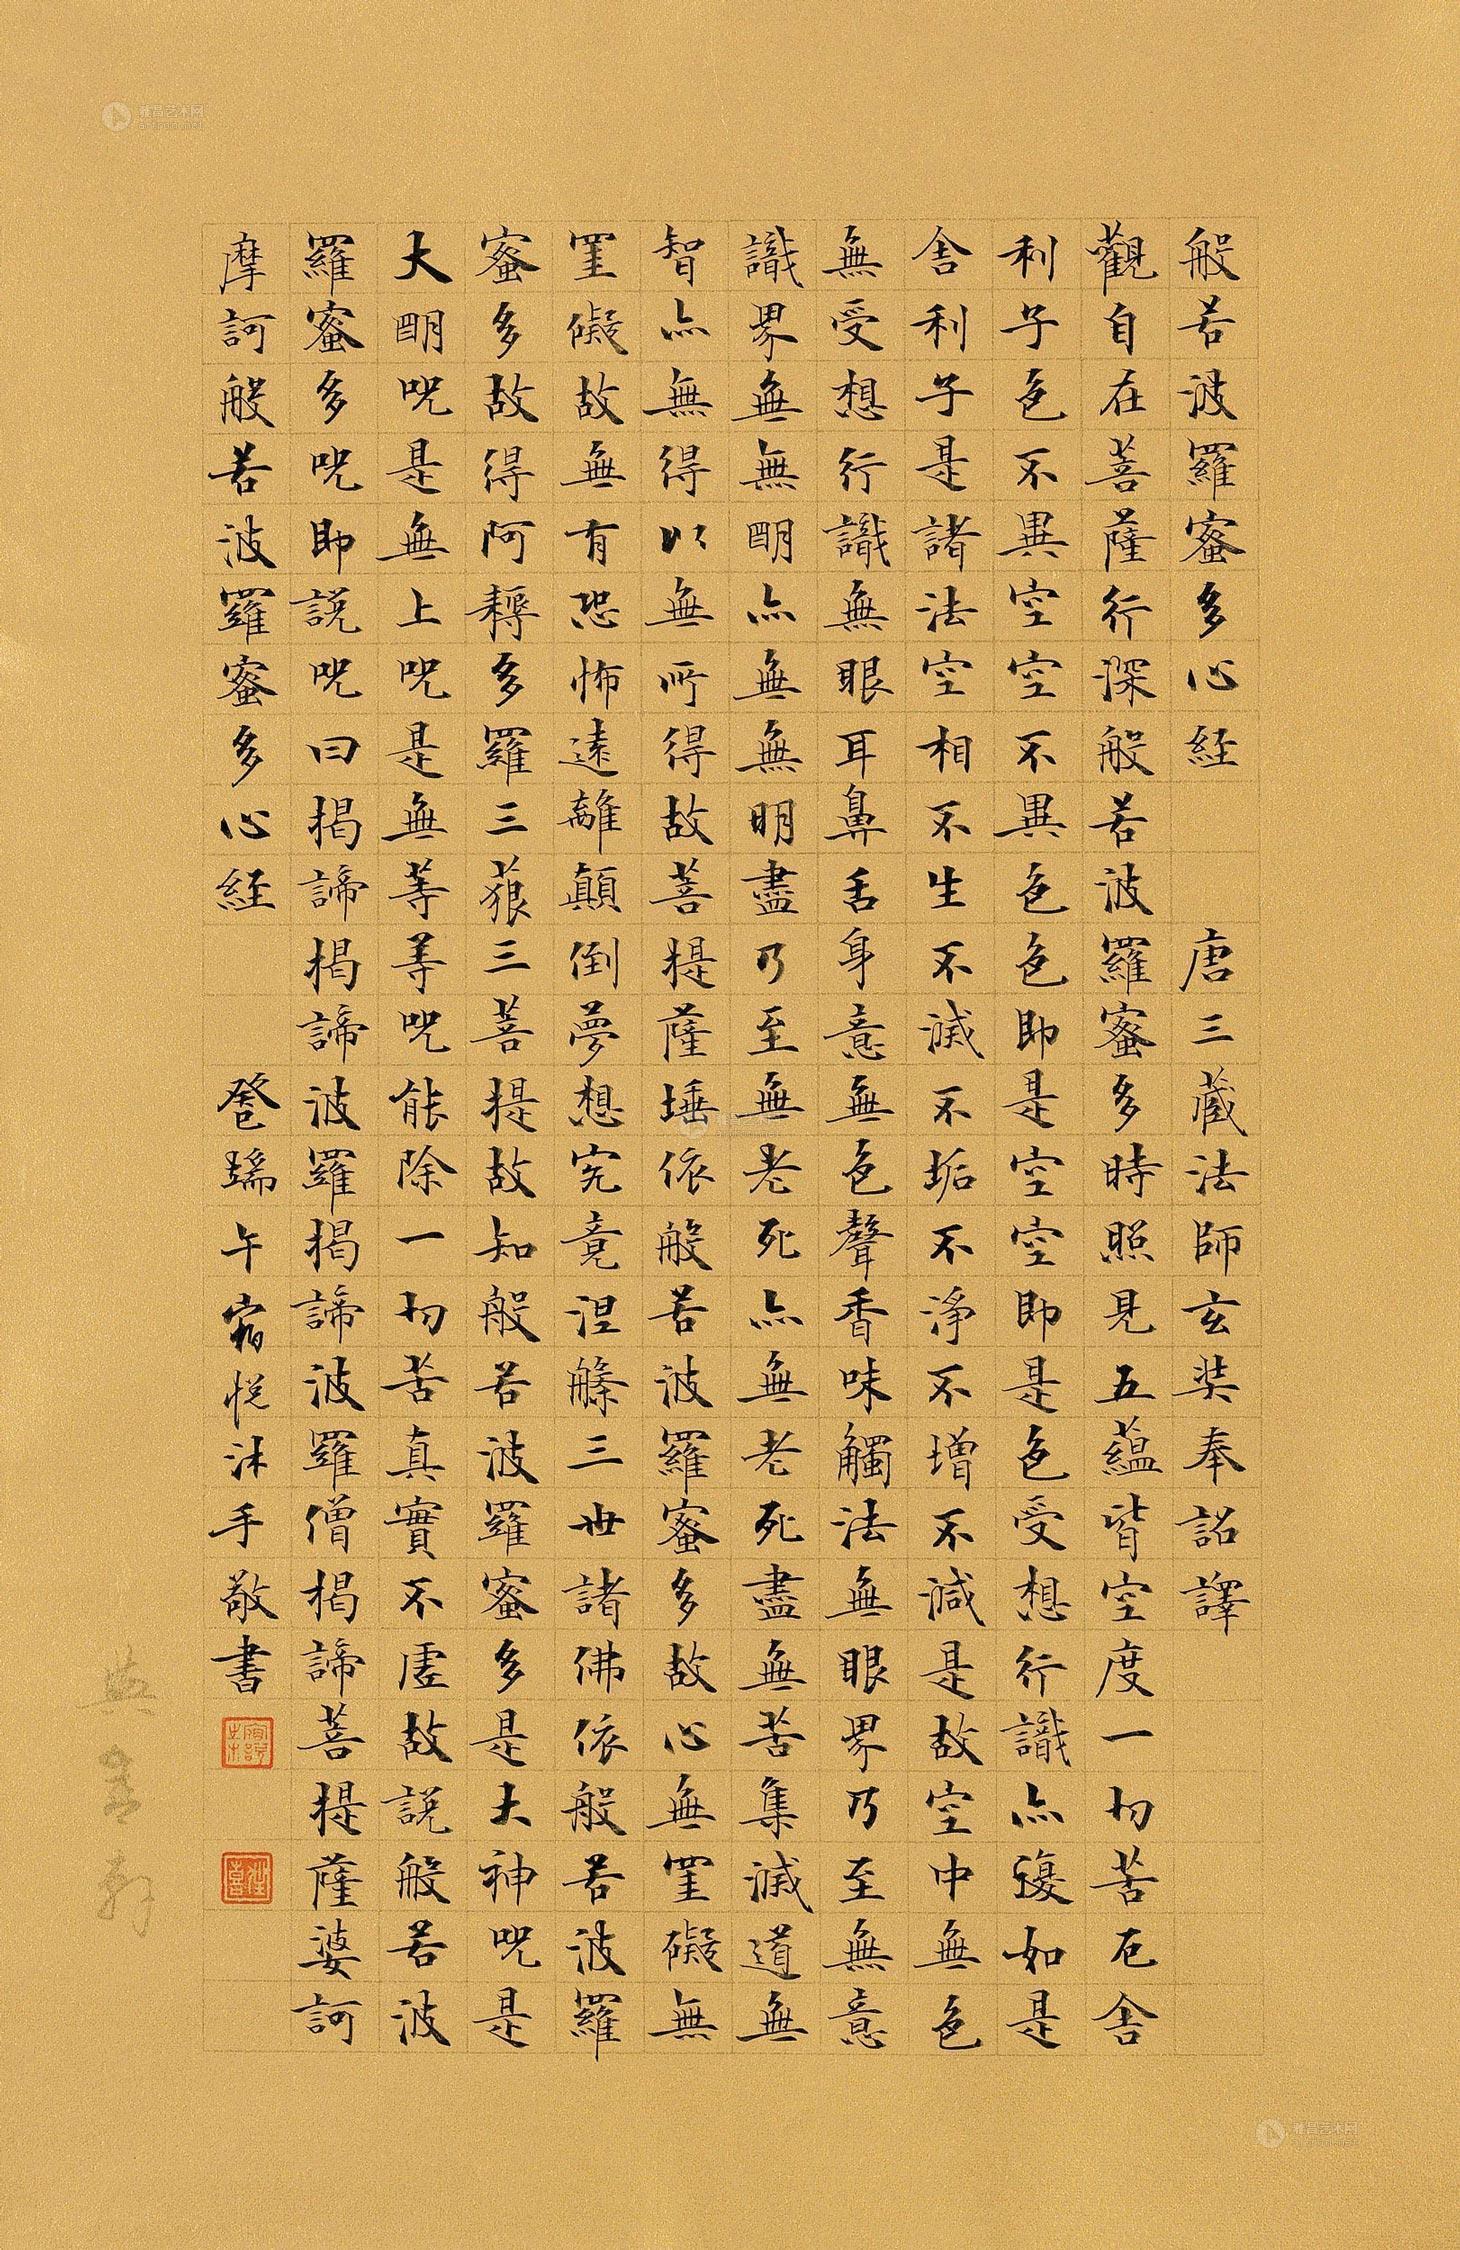 般若波羅蜜多心經 唐三藏法師玄奘奉詔譯
觀自在菩薩行深般若波羅蜜多時照見五蘊皆空度一切苦厄舍
利子色不異空空不異色色即是空空即是色受想行識亦復如是
舍利子是諸法空相不生不滅不垢不淨不增不減是故空中無色
無受想行識無眼耳鼻舌身意無色聲香味觸法無眼界乃至無意
識界無無明亦無無明盡乃至無老死亦無老死盡無苦集滅道無
智亦無得以無所得故菩提薩埵依般若波羅蜜多故心無罣礙無
罣礙故無有恐怖遠離顛倒夢想究竟涅槃三世諸佛依般若波羅
蜜多故得阿耨多羅三藐三菩提故知般若波羅蜜多是大神咒是
大明咒是無上咒是無等等咒能除一切苦真實不虛故說般若波
羅蜜多咒即說咒曰揭諦揭諦波羅揭諦波羅僧揭諦菩提薩婆訶
摩訶般若波羅蜜多心經 癸巳端午 悅沐手敬書
雅昌艺术网
artron.net
雅昌艺术网
artron.net